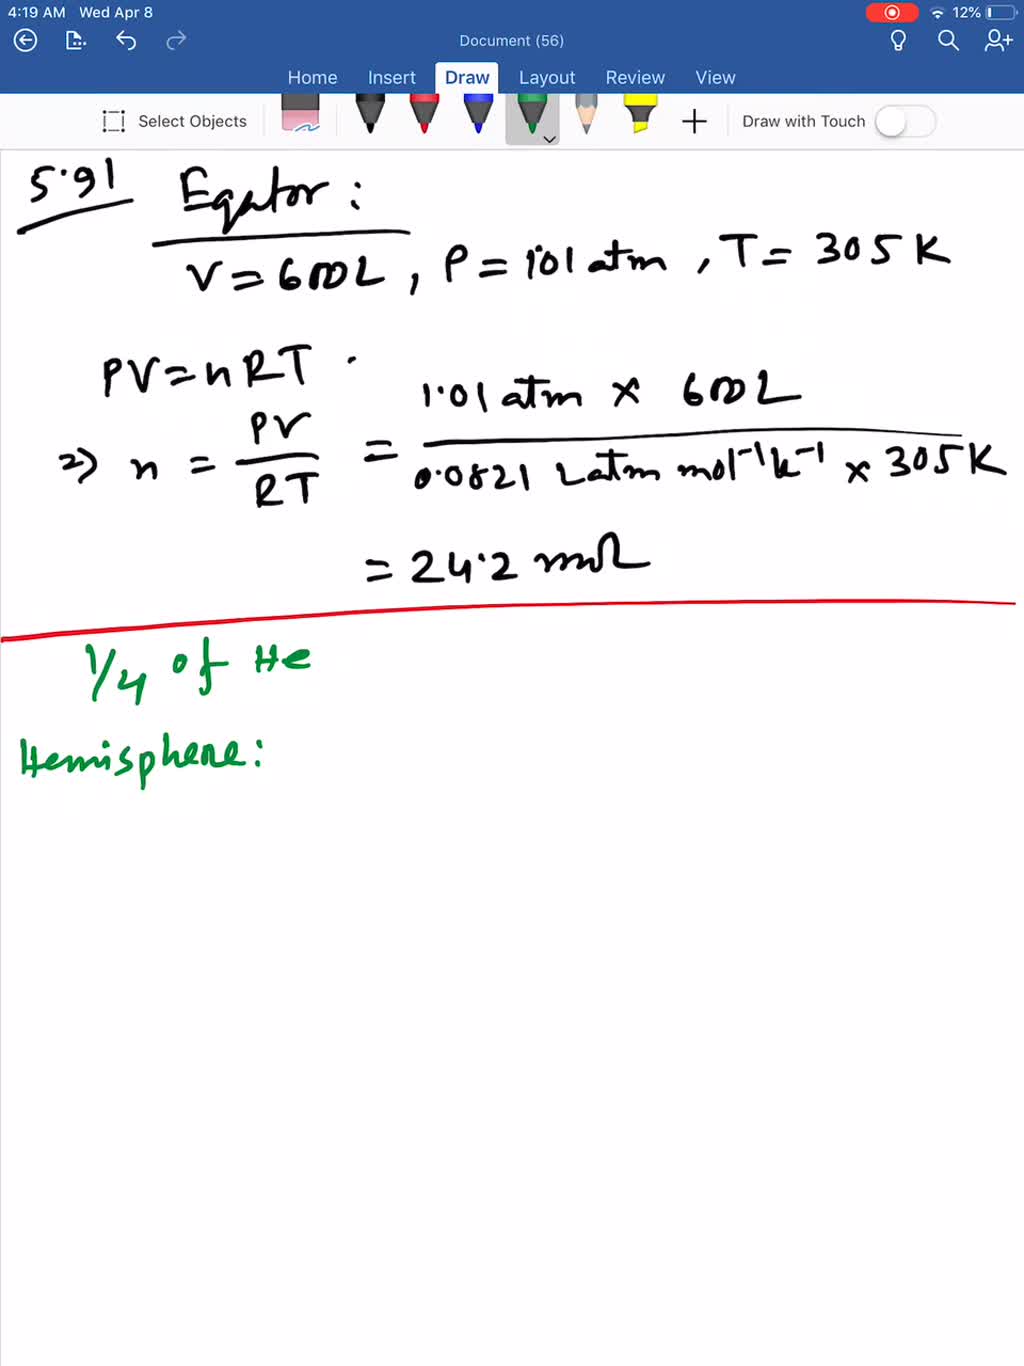 4:19 AM Wed Apr 8
12%
Document (56)
Home Insert Draw Layout Review View
Select Objects
Draw with Touch
5.91 Eqator:
V = 600L, P = 1.01 atm, T = 305 K
PV = nRT
=> n = PV/RT = 1.01 atm × 600L / 0.0821 L atm mol⁻¹ k⁻¹ × 305 K
= 24.2 mol
1/4 of He
Hemisphere: